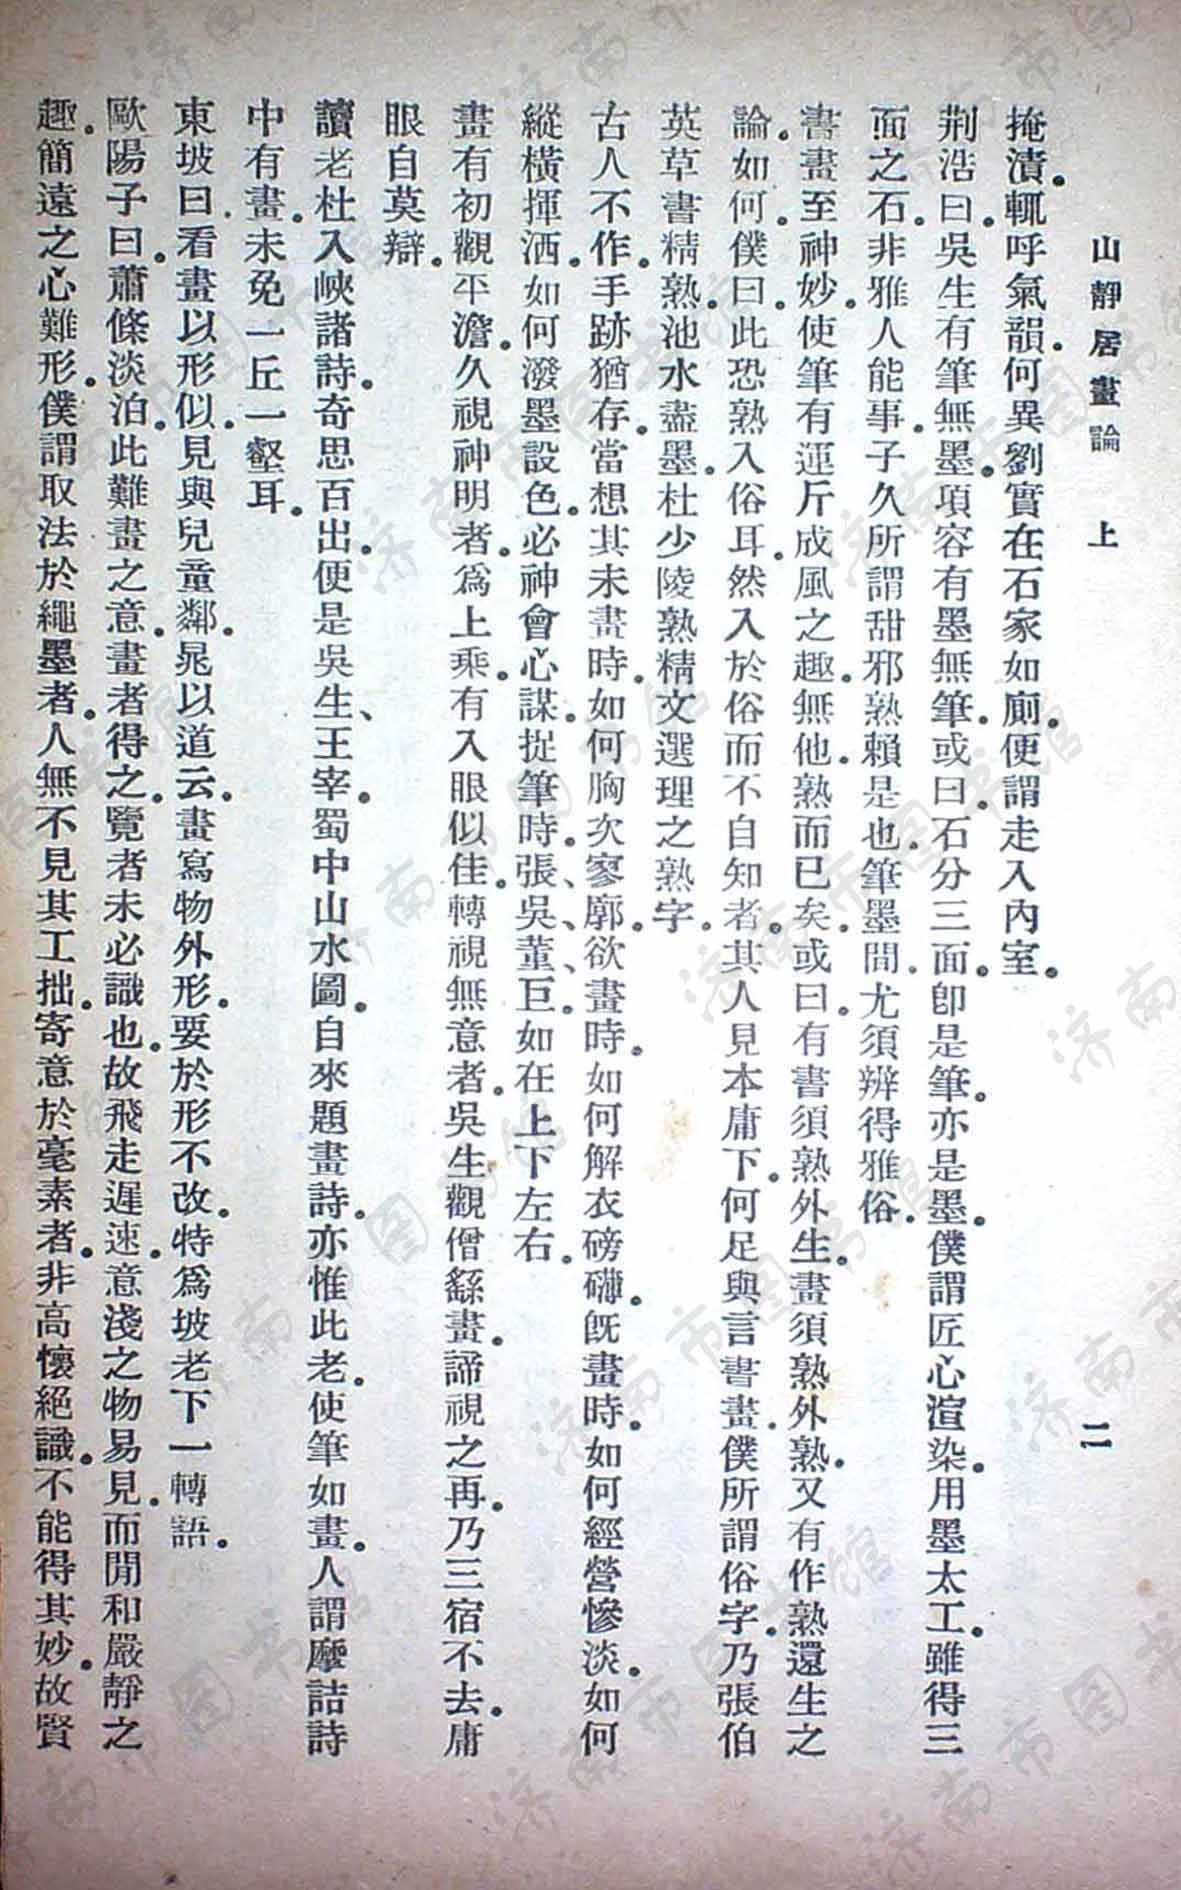 山靜居畫論　上　二
掩漬。輒呼氣韻。何異劉實在石家如廁。便謂走入內室。
荆浩曰。吳生有筆無墨。項容有墨無筆。或曰。石分三面。卽是筆。亦是墨。僕謂匠心渲染。用墨太工。雖得三
面之石。非雅人能事。子久所謂甜邪熟賴是也。筆墨間。尤須辨得雅俗。
書畫至神妙。使筆有運斤成風之趣。無他。熟而已矣。或曰。有書須熟外生。畫須熟外熟。又有作熟還生之
論。如何。僕曰。此恐熟入俗耳。然入於俗而不自知者。其人見本庸下。何足與言書畫。僕所謂俗字。乃張伯
英草書精熟。池水盡墨。杜少陵熟精文選理之熟字。
古人不作。手跡猶存。當想其未畫時。如何胸次寥廓。欲畫時。如何解衣磅礴。旣畫時。如何經營慘淡。如何
縱橫揮洒。如何潑墨設色。必神會心謀。捉筆時。張、吳、董、巨。如在上下左右。
畫有初觀平澹。久視神明者。爲上乘。有入眼似佳。轉視無意者。吳生觀僧繇畫。諦視之再。乃三宿不去。庸
眼自莫辯。
讀老杜入峽諸詩。奇思百出。便是吳生、王宰。蜀中山水圖。自來題畫詩。亦惟此老。使筆如畫。人謂摩詰詩
中有畫。未免一丘一壑耳。
東坡曰。看畫以形似。見與兒童鄰。晁以道云。畫寫物外形。要於形不改。特爲坡老下一轉語。
歐陽子曰。蕭條淡泊。此難畫之意。畫者得之。覽者未必識也。故飛走遲速。意淺之物易見。而閒和嚴靜之
趣。簡遠之心難形。僕謂取法於繩墨者。人無不見其工拙。寄意於毫素者。非高懷絕識。不能得其妙。故賢